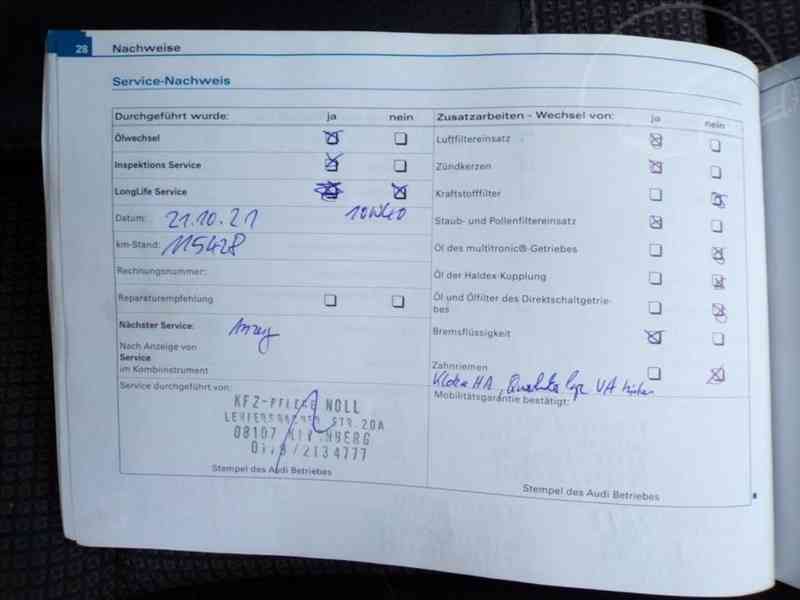 28 Nachweise
Service-Nachweis
Durchgeführt wurde: ja nein
Ölwechsel
Inspektions Service
LongLife Service
Datum: 21.10.21 10W40
km-Stand: 115428
Rechnungsnummer:
Reparaturempfehlung
Nächster Service:
Nach Anzeige von
Service
im Kombiinstrument
Service durchgeführt von:
KFZ-PFLEGE NOLL
STR. 20A
08107
/2134777
Stempel des Audi Betriebes
Zusatzarbeiten - Wechsel von: ja nein
Luftfiltereinsatz
Zündkerzen
Kraftstofffilter
Staub- und Pollenfiltereinsatz
Öl des multitronic®-Getriebes
Öl der Haldex-Kupplung
Öl und Ölfilter des Direktschaltgetrie-
bes
Bremsflüssigkeit
Zahnriemen
HA, VA
Mobilitätsgarantie bestätigt:
Stempel des Audi Betriebes